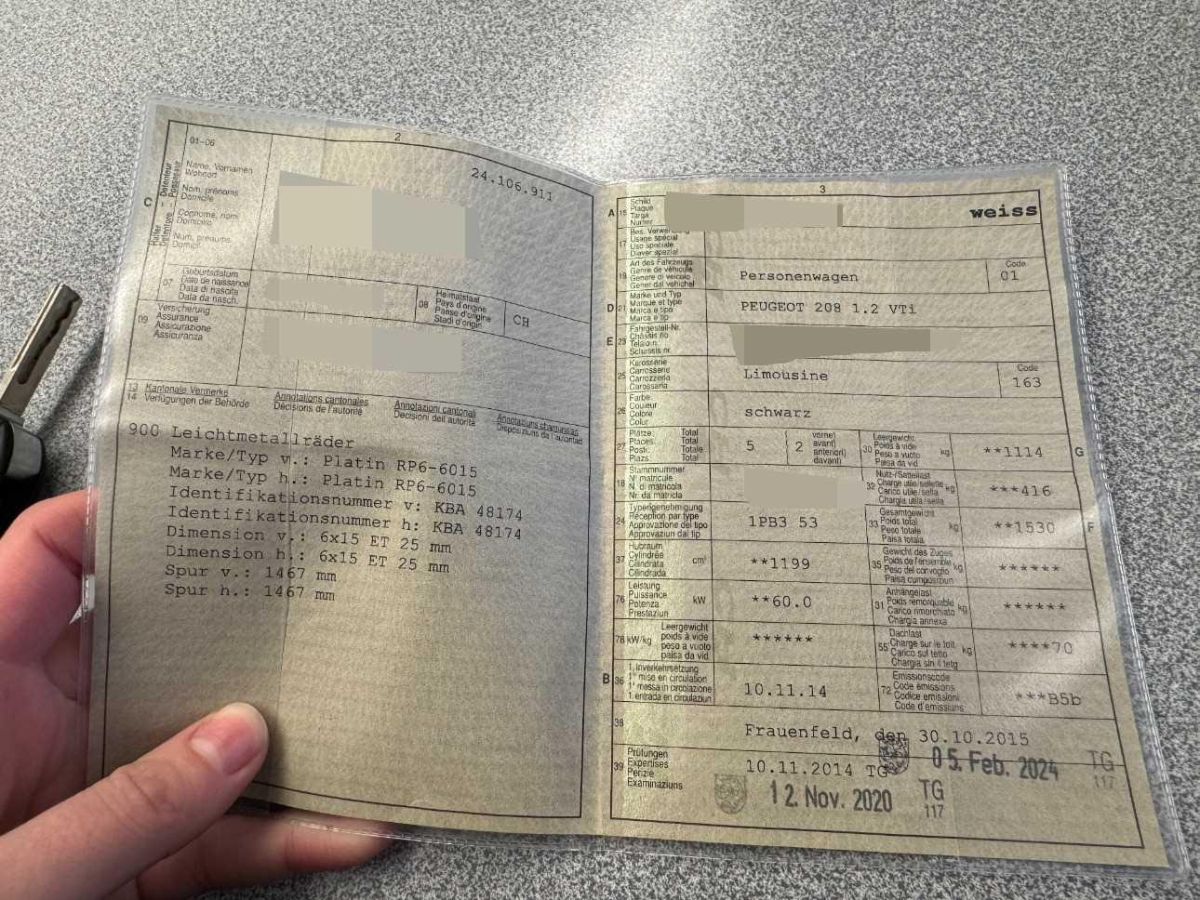 2
01-06
24.106.911
C
Name, Vornamen
Wohnort
Nom, prénoms
Domicile
Cognome, nomi
Domicilio
Num, prenums
Domicil
07
Geburtsdatum
Date de naissance
Data di nascita
Data da nasch.
08
Heimatstaat
Pays d'origine
Paese d'origine
Stadi d'origin
CH
09
Versicherung
Assurance
Assicurazione
Assicuranza
13 Kantonale Vermerke
14 Verfügungen der Behörde
Annotations cantonales
Décisions de l'autorité
Annotazioni cantonali
Decisioni dell'autorità
Annotaziuns chantunalas
Disposiziuns da l'autoritad
900 Leichtmetallräder
Marke/Typ v.: Platin RP6-6015
Marke/Typ h.: Platin RP6-6015
Identifikationsnummer v: KBA 48174
Identifikationsnummer h: KBA 48174
Dimension v.: 6x15 ET 25 mm
Dimension h.: 6x15 ET 25 mm
Spur v.: 1467 mm
Spur h.: 1467 mm
3
A 15
Schild
Plaque
Targa
Numer
weiss
17
Usage spécial
Uso speciale
Diever spezial
19
Art des Fahrzeugs
Genre de véhicule
Genere di veicolo
Gener dal vehichel
Personenwagen
Code
01
D 21
Marke und Typ
Marque et type
Marca e tipo
Marca e tip
PEUGEOT 208 1.2 VTi
E 23
Fahrgestell-Nr.
Châssis no
Telaio n.
Schassis nr.
25
Karosserie
Carrosserie
Carrozzeria
Carossaria
Limousine
Code
163
26
Farbe
Couleur
Colore
Colur
schwarz
27
Plätze: Total
Places: Total
Posti: Totale
Plazs: Total
5
2
vorne)
avant)
anteriori)
davant)
30
Leergewicht
Poids à vide
Peso a vuoto
Paisa da vid
kg
**1114
G
18
Stammnummer
N° matricule
N. di matricola
Nr. da matricla
32
Nutz-/Sattellast
Charge utile/sellette
Carico utile/sella
Chargia utila/sella
kg
***416
24
Typengenehmigung
Réception par type
Approvazione del tipo
Approvaziun dal tip
1PB3 53
33
Gesamtgewicht
Poids total
Peso totale
Paisa totala
kg
**1530
F
37
Hubraum
Cylindrée
Cilindrata
Cilindrada
cm³
**1199
35
Gewicht des Zuges
Poids de l'ensemble
Peso del convoglio
Paisa cumposiziun
kg
******
76
Leistung
Puissance
Potenza
Prestaziun
kW
**60.0
31
Anhängelast
Poids remorquable
Carico rimorchiato
Chargia annexa
kg
******
78 kW/kg
Leergewicht
poids à vide
peso a vuoto
paisa da vid
******
55
Dachlast
Charge sur le toit
Carico sul tetto
Chargia sin il tetg
kg
****70
B 36
1. Inverkehrsetzung
1re mise en circulation
1a messa in circolazione
1. entrada en circulaziun
10.11.14
72
Emissionscode
Code émissions
Codice emissioni
Code d'emissiuns
***B5b
38
Frauenfeld, den 30.10.2015
39
Prüfungen
Expertises
Perizie
Examinaziuns
10.11.2014 TG
05. Feb. 2024
TG
117
12. Nov. 2020
TG
117